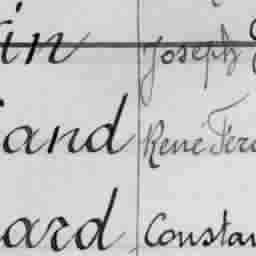 in Joseph
and René Fer
ard Constan